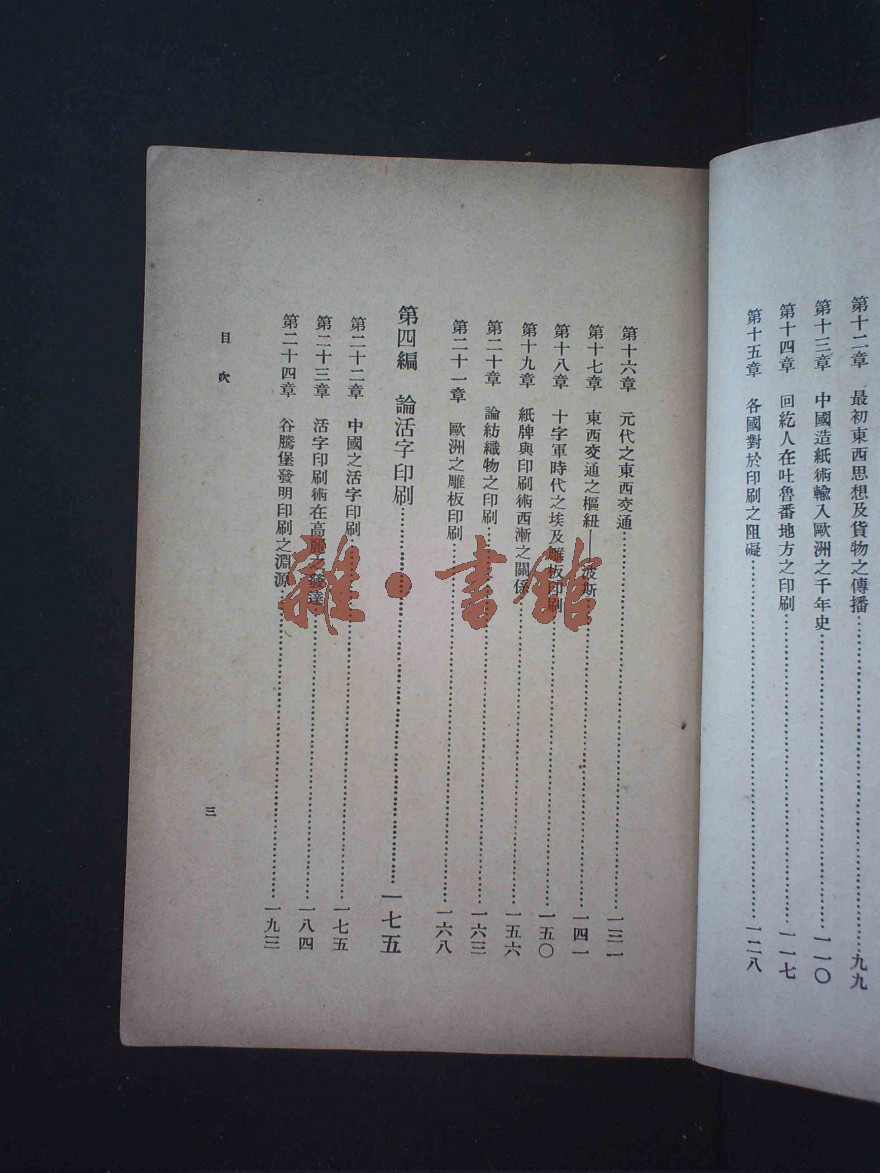 第十二章　最初東西思想及貨物之傳播……九九
第十三章　中國造紙術輸入歐洲之千年史……一一〇
第十四章　回紇人在吐魯番地方之印刷……一一七
第十五章　各國對於印刷之阻礙……一二八
第十六章　元代之東西交通……一三一
第十七章　東西交通之樞紐——波斯……一四一
第十八章　十字軍時代之埃及雕板印刷……一五〇
第十九章　紙牌與印刷術西漸之關係……一五六
第二十章　論紡織物之印刷……一六三
第二十一章　歐洲之雕板印刷……一六八
第四編　論活字印刷……一七五
第二十二章　中國之活字印刷……一七五
第二十三章　活字印刷術在高麗之發達……一八四
第二十四章　谷騰堡發明印刷之淵源……一九三
目次
三
雜·書館